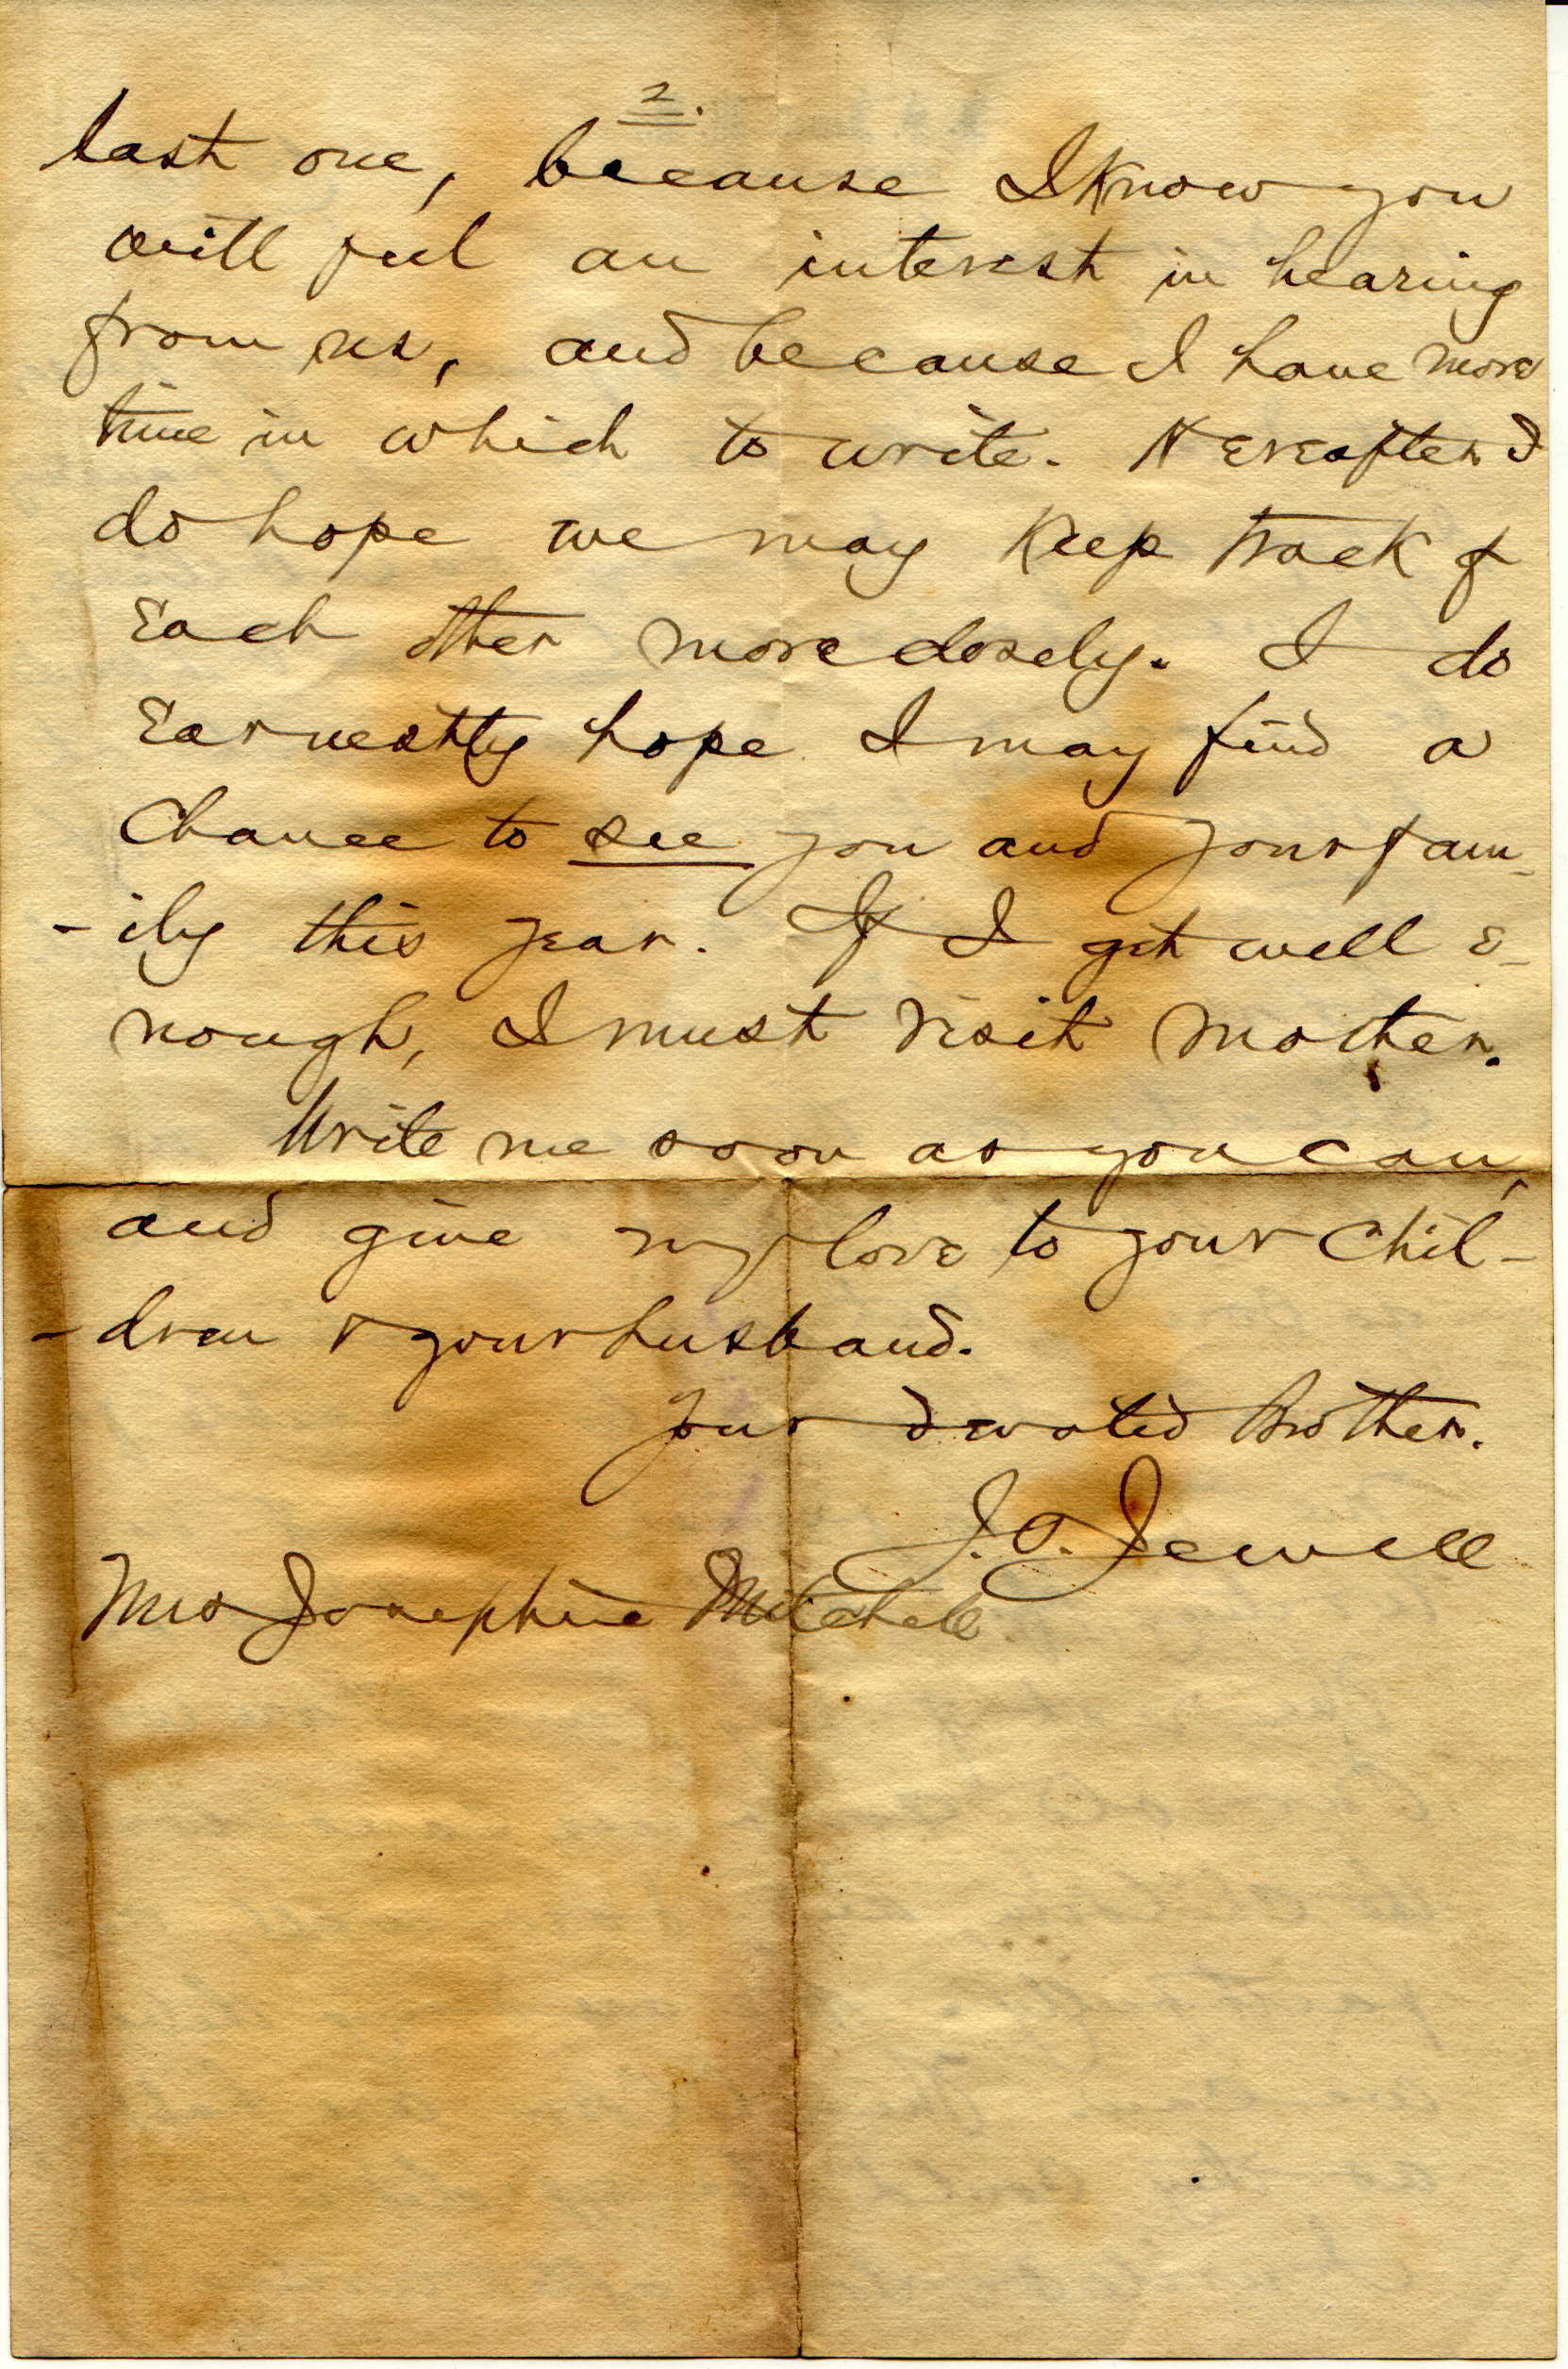 2.
last one, because I know you
will feel an interest in hearing
from us, and because I have more
time in which to write. Hereafter I
do hope we may keep track of
Each other more closely. I do
Earnestly hope I may find a
Chance to see you and your fam-
-ily this year. If I get well e-
nough, I must visit Mother.
Write me soon as you can,
and give my love to your Chil-
-dren & your husband.
Your devoted Brother.
J.O. Jewell
Mrs Josephine Mitchell.